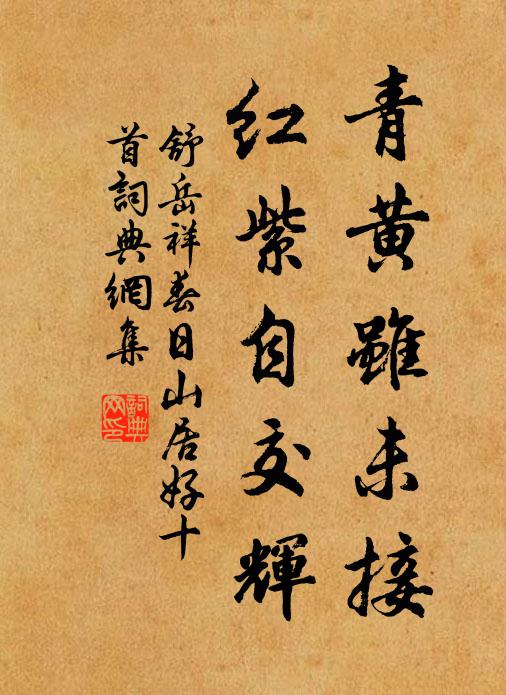 青黄雖未接
红紫自交輝
舒岳祥春日山居好十
首詞典網集
詞典
网印